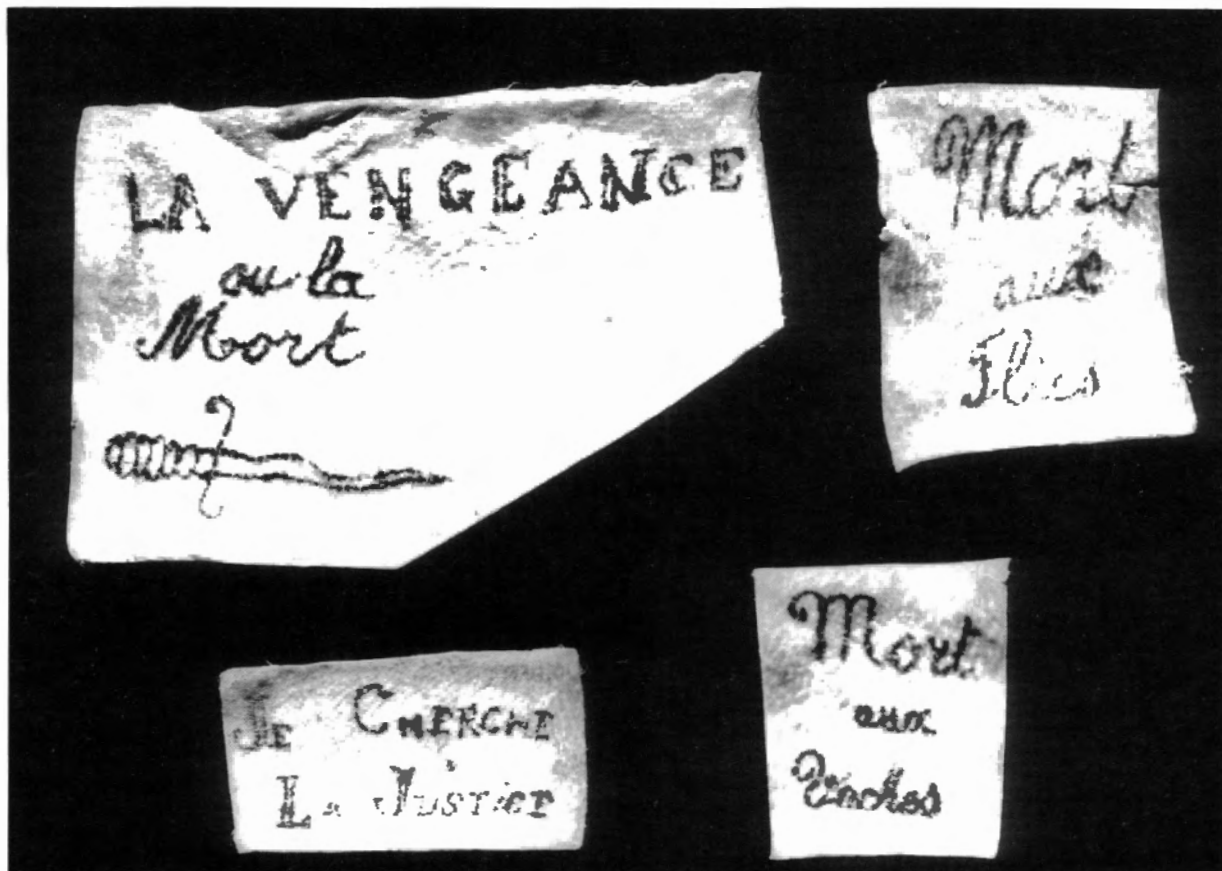 LA VENGEANCE
ou la
Mort
Mort
aux
Flics
JE CHERCHE
LA JUSTICE
Mort
aux
Vaches